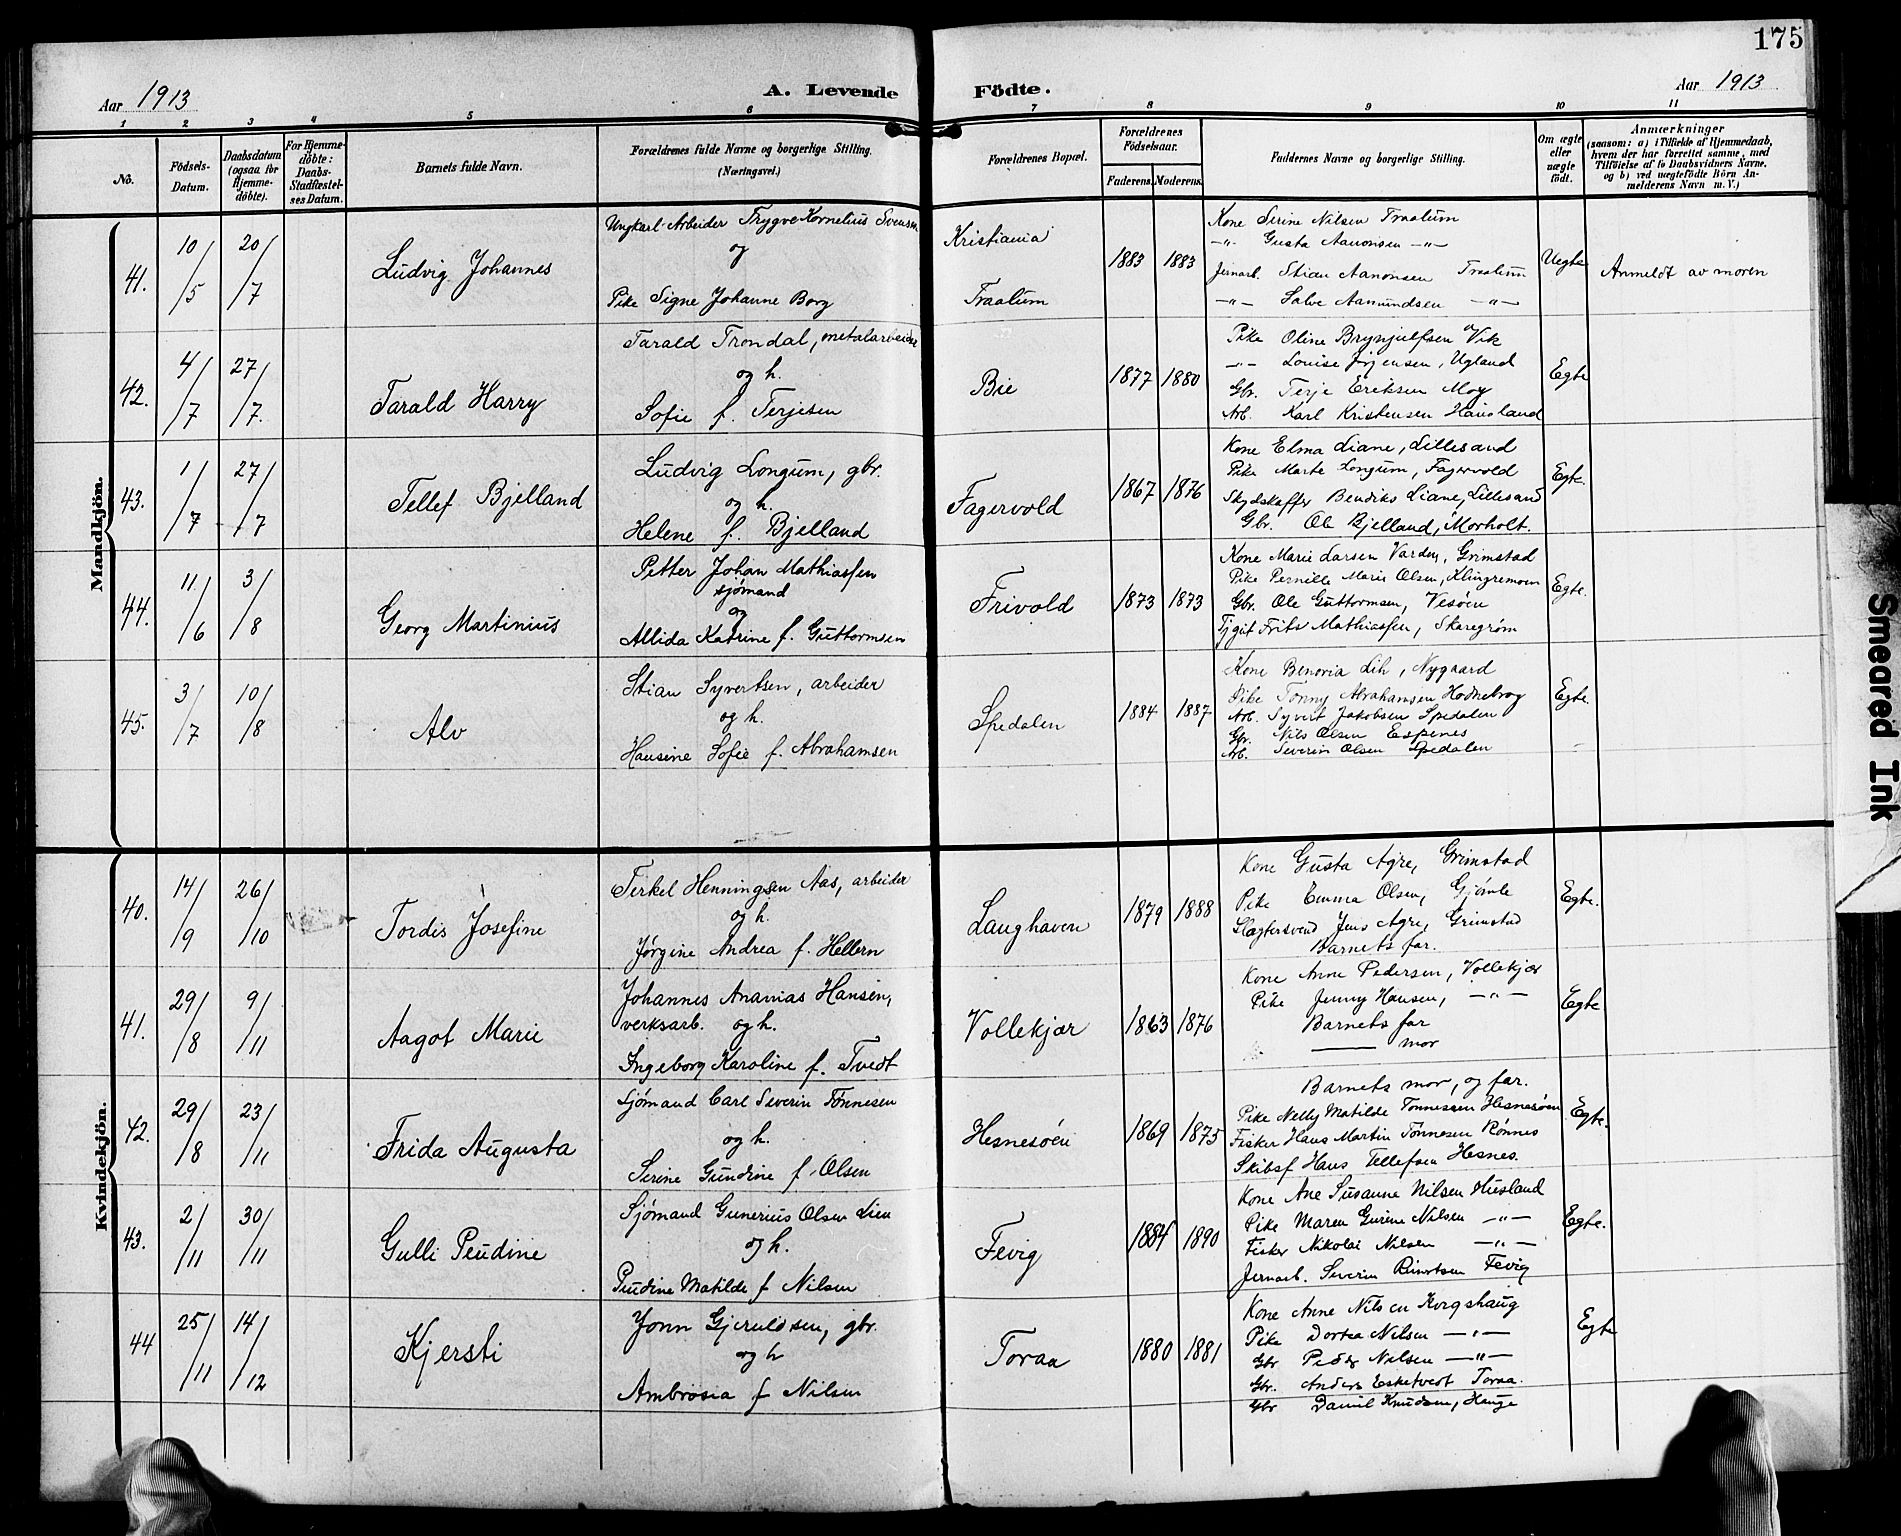 175
Aar 1913
A. Levende Födte.
Aar 1913
1 2 3 4 5 6 7 8 9 10 11
No.
Födsels-Datum.
Daabsdatum (ogsaa for Hjemme-döbte).
For Hjemme-döbte: Daabs-Stadfæstel-ses Datum.
Barnets fulde Navn.
Forældrenes fulde Navne og borgerlige Stilling. (Næringsvei.)
Forældrenes Bopæl.
Forældrenes Födselsaar.
Faderens. Moderens.
Faddernes Navne og borgerlige Stilling.
Om ægte eller uægte födt.
Anmærkninger
(saasom: a) i Tilfælde af Hjemmedaab, hvem der har forrettet samme, med Tilföielse af to Daabsvidners Navne. og b) ved uægtefödte Börn An-melderens Navn m. V.)
Mandkjön.
41. 10/5 20/7 Ludvig Johannes
Ungkarl-Arbeider Trygve Kornelius Svensen
og
Pike Signe Johanne Borg
Kristiania
Fraalum
1883 1883
Kone Serine Nilsen Traalum
-"- Gusta Aanonsen -"-
Jernarb. Stian Aanonsen Traalum
-"- Salve Aamundsen -"-
Uegte
Anmeldt av moren
42. 4/7 27/7. Tarald Harry
Tarald Trondal, metalarbeider
og h.
Sofie f. Terjesen
Bie
1877 1880
Pike Oline Brynjulfsen Vik
-"- Louise Jørgensen, Ugland
Gbr. Terje Eriksen Moy
Arb. Karl Kristensen Hausland
Egte
43. 1/7 27/7 Tellef Bjelland
Ludvig Longum, gbr.
og h.
Helene f. Bjelland
Fagervold
1867 1876
Kone Elma Liane, Lillesand
Pike Marte Longum, Fagervold
Skydskaffer Bendiks Liane, Lillesand
Gbr. Ole Bjelland, Morholt.
Egte.
44. 11/6 3/8 Georg Martinius
Petter Johan Mathiassen
sjømand
og
Allida Katrine f. Guttormsen
Frivold
1873 1873
Kone Marie Larsen Varden, Grimstad
Pike Pernille Marie Olsen, Klingremoen
Gbr. Ole Guttormsen, Vesøen
Tjgit Frits Mathiassen, Skaregrøm
Egte.
45. 3/7 10/8 Alv
Stian Syvertsen, arbeider
og h.
Hansine Sofie f. Abrahamsen
Spedalen
1884 1887
Kone Benovia Lih, Nygaard
Pike Tonny Abrahamsen Hodnebrog
Arb. Syvert Jakobsen Spedalen
Gbr. Nils Olsen Espenes
Arb. Severin Olsen Spedalen
Egte.
Kvindekjön.
40. 14/9 26/10 Tordis Josefine
Terkel Henningsen Aas, arbeider
og h.
Jørgine Andrea f. Hellern
Langhaven
1879 1888
Kone Gusta Agre, Grimstad
Pike Emma Olsen, Gjømle
Slagtersvend Jens Agre, Grimstad
Barnets far.
Egte.
41. 29/8 9/11 Aagot Marie
Johannes Ananias Hansen,
verksarb. og h.
Ingeborg Karoline f. Tvedt
Vollekjær
1863 1876
Kone Anne Pedersen, Vollekjær
Pike Jenny Hansen, -"-
Barnets far
—— mor
Egte
42. 29/8 23/11 Frida Augusta
Sjømand Carl Severin Tønnesen
og h.
Serine Gundine f. Olsen
Hesnesøen
1869 1875
Barnets mor, og far.
Pike Nelly Matilde Tønnessen Hesnesøen
Fisker Hans Martin Tønnesen Rønnes
Skibsf Hans Tellefsen Hesnes.
Egte.
43. 2/11 30/11 Gulli Peudine
Sjømand Gunerius Olsen Lien
og h.
Peudine Matilde f Nilsen
Fevig
1884 1890
Kone Ane Susanne Nilsen Husland
Pike Maren Gurine Nilsen -"-
Fisker Nikolai Nilsen -"-
Jernarb. Severin Fevig
Egte.
44 25/11 14/12 Kjersti
Jonn Gjeruldsen, gbr.
og h
Ambrosia f Nilsen
Toraa
1880 1881
Kone Anne Nilsen Korgshaug
Pike Dortea Nilsen -"-
Gbr Peder Nilsen -"-
Gbr. Anders Esketvedt Toraa.
Gbr Daniel Knudsen, Hauge
Egte
Smeared Ink